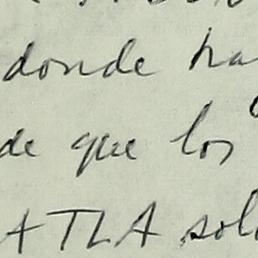 donde ha
de que los
ATLA sol